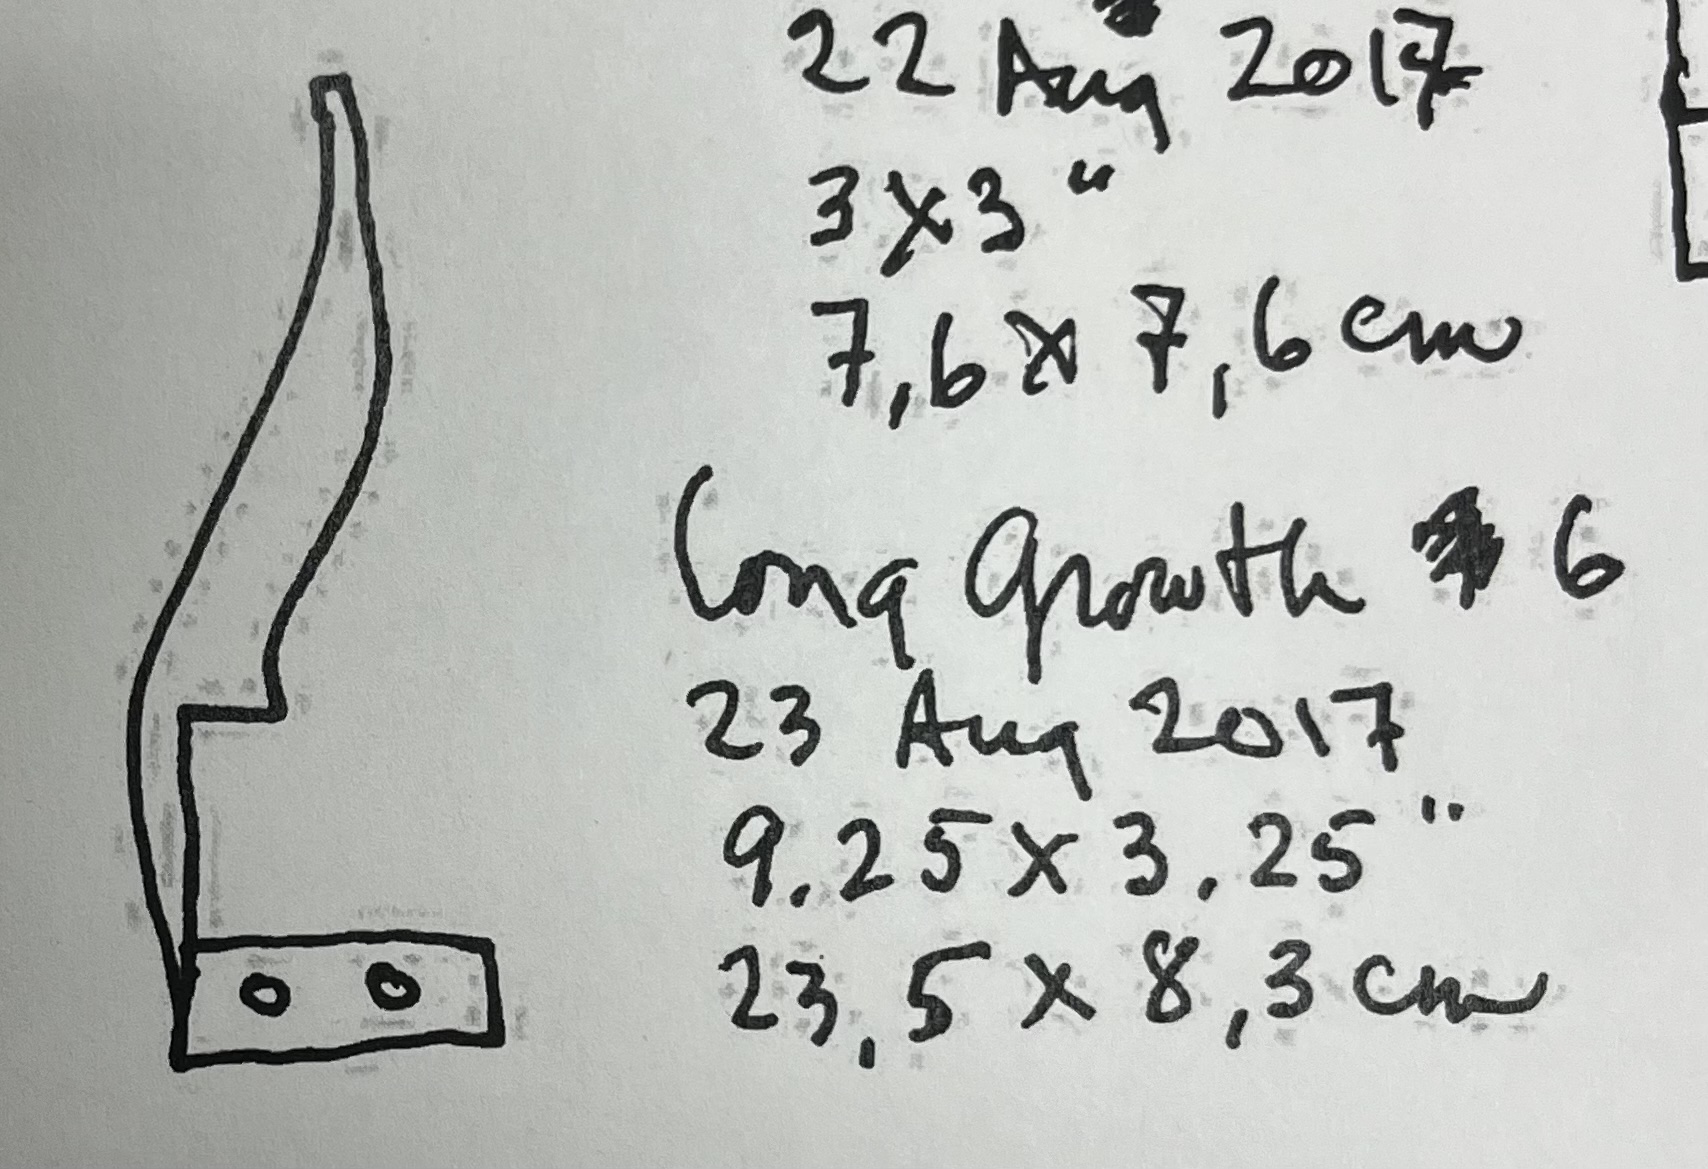 22 Aug 2017
3 x 3 "
7,6 x 7,6 cm
Long Growth 6
23 Aug 2017
9.25 x 3.25 "
23,5 x 8,3 cm